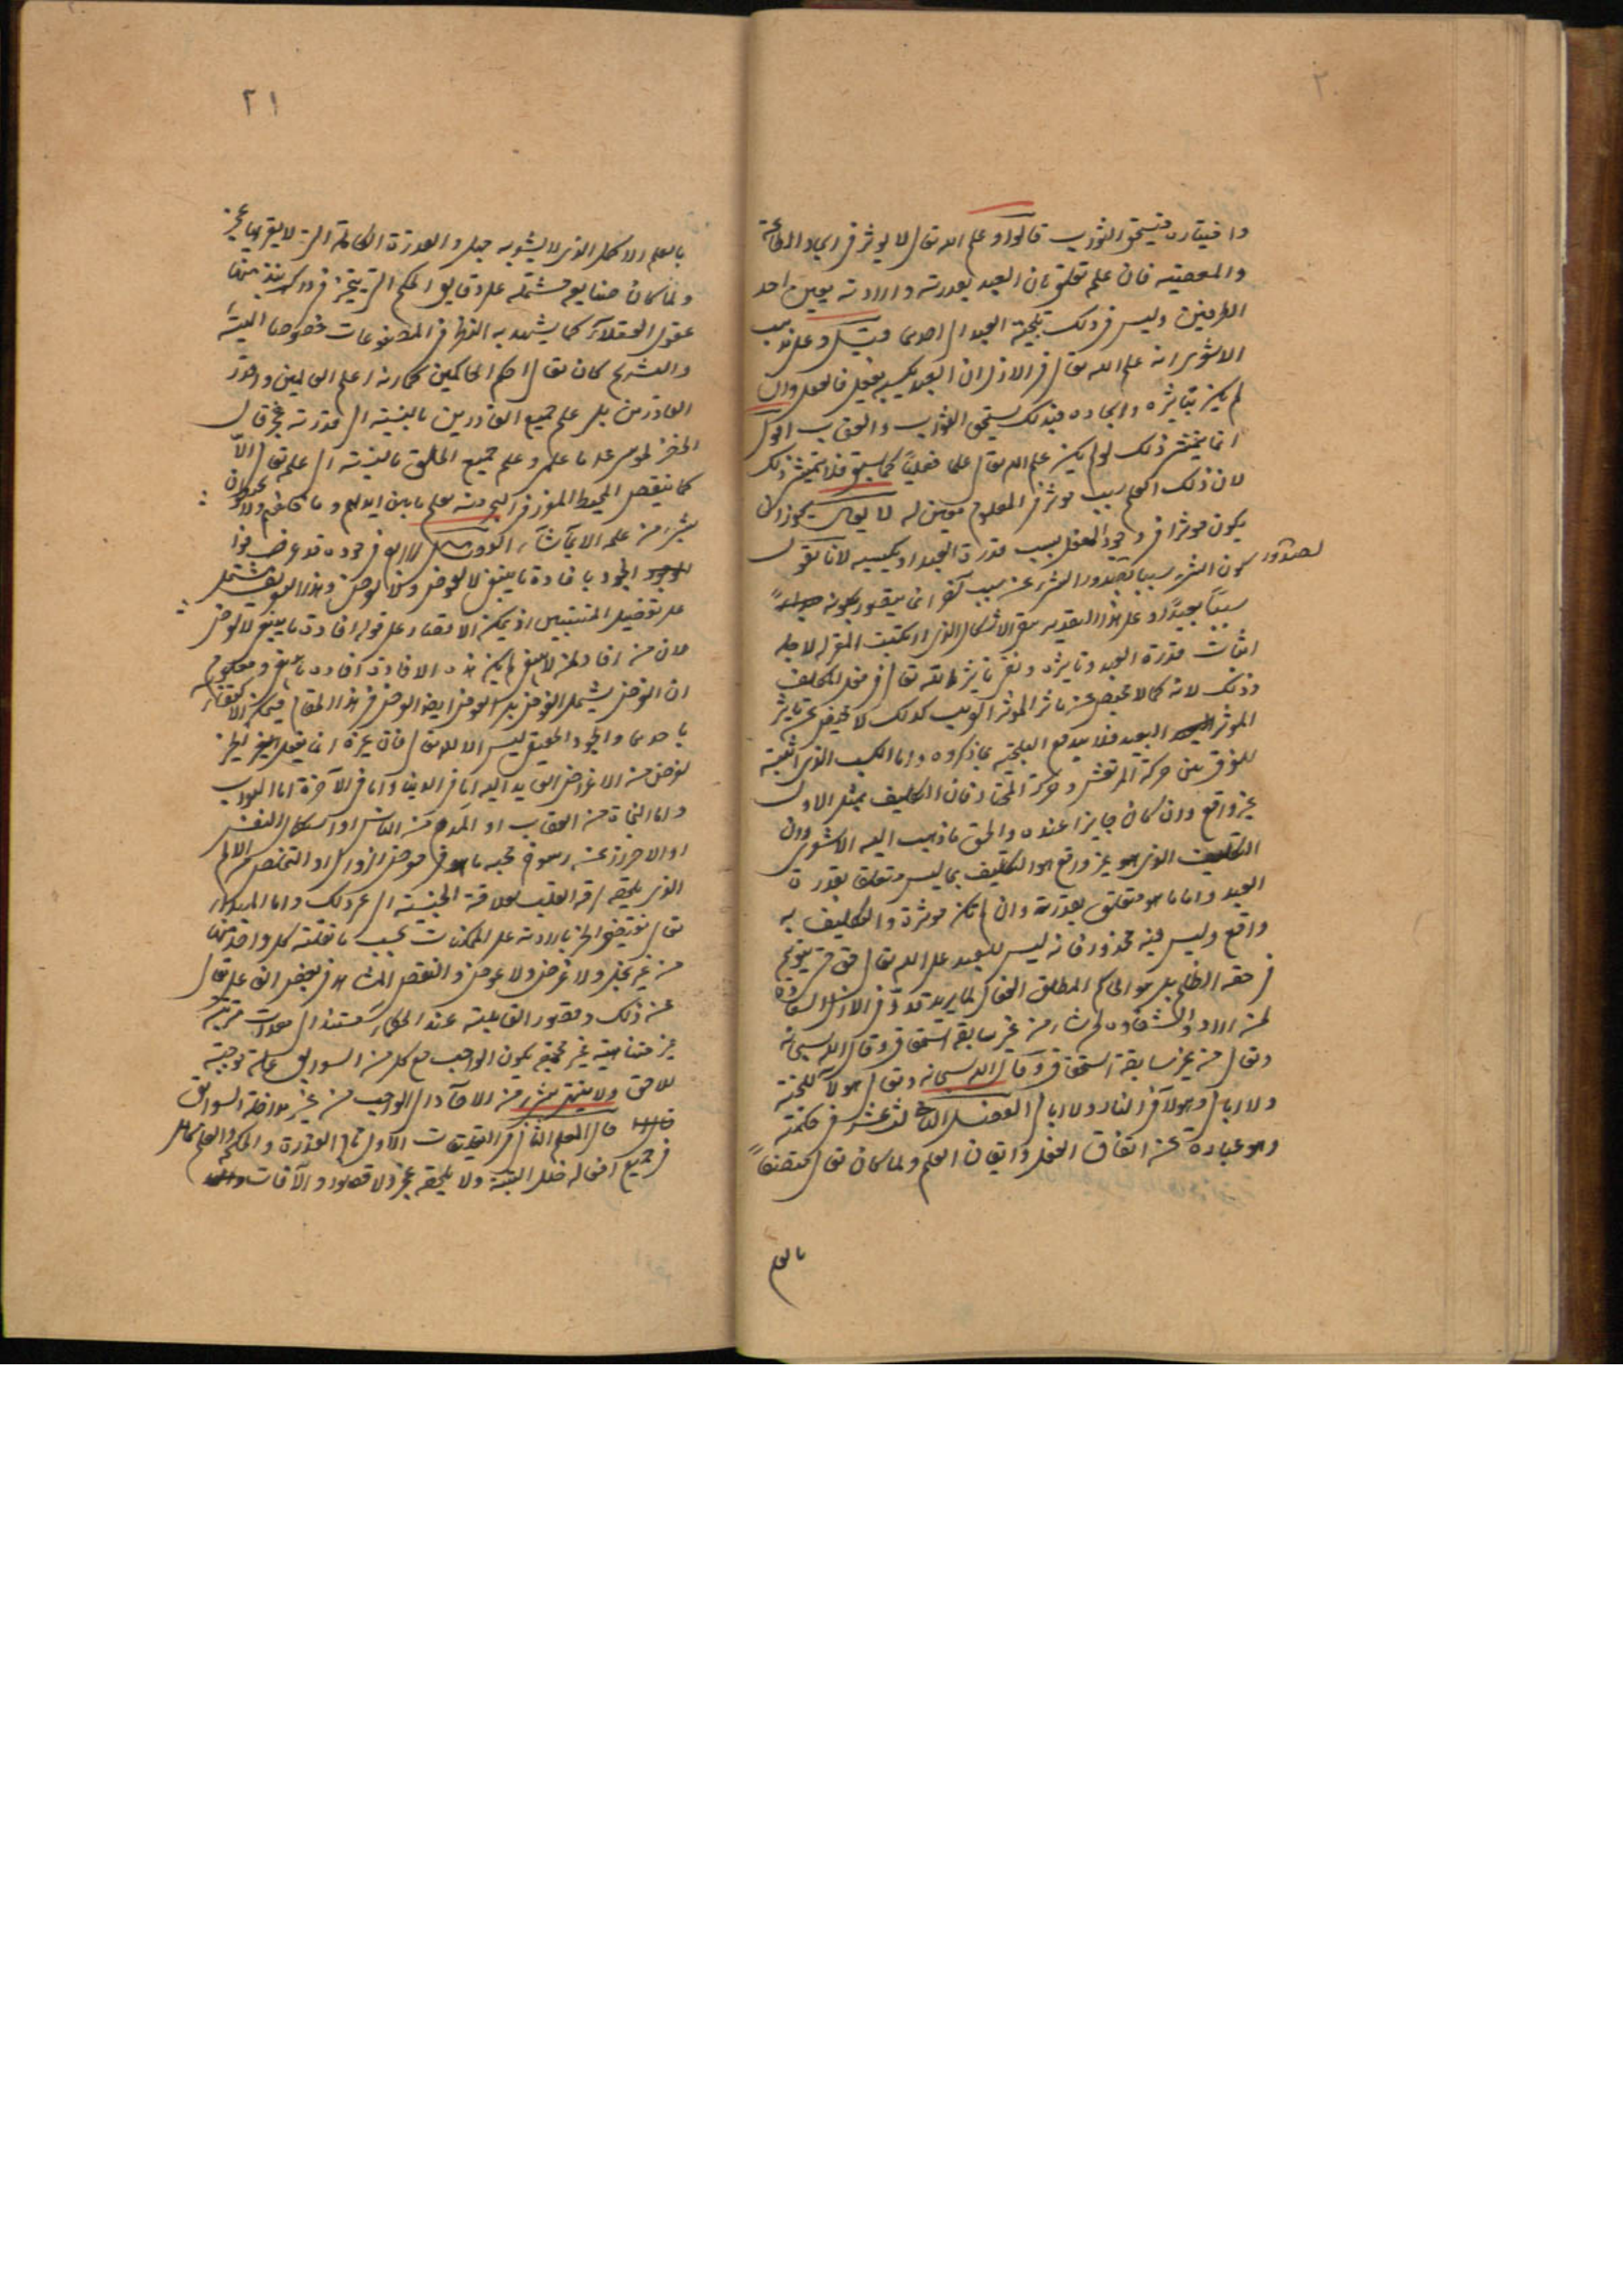 ٢٠
واختياره فيستحق الثواب قالوا وعلم الله تعالى لا يوثر في ايجاد الطاعة
والمعصية فان علمه تعلق بان العبد بقدرته وارادته يعين احد
الطرفين وليس في ذلك تلجئة العبد الى احدهما قيل وعلى مذهب
الاشعري انه علم الله تعالى في الازل ان العبد يكسبه بفعل فالفعل وان
لم يكن بتاثيره وايجاده فبذلك يستحق الثواب والعقاب اقول
انما يتمشى ذلك لو لم يكن علم الله تعالى علما فعليا كما سبق فلا يتمشى ذلك
لان ذلك العلم سبب موثر في المعلوم مقتض له لا يقال يجوز ان
يكون موثرا في وجود الفعل بسبب قدرة العبد او بكسبه لانا نقول
لصدور
كون الشيء سببا لصدور الشيء عن سبب آخر انما يتصور بكونه
سببا بعيدا وعلى هذا التقدير يبقى الاشكال الذي ارتكبت المعتزلة لاجله
اثبات قدرة العبد وتاثيره ونفي تاثير الله تعالى في فعل المكلف
وذلك لانه كما لا محيص عن تاثر الموثر القريب كذلك لا محيص عن تاثير
الموثر البعيد فلا يندفع التلجئة بما ذكروه واما الكسب الذي اثبته
للفرق بين حركة المرتعش وحركة المختار فان التكليف بمثل الاول
غير واقع وان كان جايزا عنده والحق ما ذهب اليه الاشعري وان
التكليف الذي هو غير واقع هو التكليف بما ليس متعلقا بقدرة
العبد واما ما هو متعلق بقدرته وان لم تكن موثرة والتكليف به
واقع وليس فيه محذور فانه ليس للعبد على الله تعالى حق حتى يتوهم
في حقه الظلم بل هو الحاكم المطلق الفعال لما يريد قدر في الازل السعادة
لمن اراد والشقاوة لمن شاء من غير سابقة استحقاق وقال الله سبحانه
وتعالى من غير سابقة استحقاق وقال الله سبحانه وتعالى هولاء للجنة
ولا ابالي وهولاء في النار ولا ابالي الفصل الثاني عشر في حكمته
وهو عبارة عن اتقان الفعل واتقان العلم ولما كان تعالى متصفا
بالعلم
٢١
بالعلم الاكمل الذي لا يشوبه جهل والقدرة الكاملة التي لا يعتريها عجز
ولما كان صنايعه مشتملة على دقايق الحكم التي يتحير في درك نبذ منها
عقول العقلاء كما يشهد به النظر في المصنوعات خصوصا الهيئة
والتشريح كان تعالى احكم الحاكمين كما انه اعلم العالمين واقدر
القادرين بل علم جميع القادرين بالنسبة الى قدرته عجز قال
الخضر لموسى ما علمي وعلمك وعلم جميع الخلق بالنسبة الى علمه تعالى الا
كما ينقص المخيط المغرز في البحر منه يعلم ما بين ايديهم وما خلفهم ولا يحيطون
بشيء من علمه الا بما شاء الفصل الرابع في جوده قد عرفوا
الجود بافادة ما ينبغي لا لعوض ولا لغرض وهذا التعريف مشتمل
على تفصيل اذ يمكن الاقتصار على قوله افادة ما ينبغي لا لغرض
لان من افاد لمن لا ينبغي لم يكن هذه الافادة افادة ما ينبغي ومعلوم
ان الغرض يشمل العوض بل العوض ايضا الغرض في هذا المقام فيمكن الاكتفاء
باحدهما والجود الحقيقي ليس الا لله تعالى فان غيره انما يفعل الخير
لغرض من الاغراض العايدة اليه اما في الدنيا واما في الآخرة اما الثواب
واما النجاة من العقاب او المدح من الناس او استكمال النفس
او الاحتراز عن رسوخ محبة ما هو في معرض الزوال او التخلص من الالم
الذي يلحقه لرقة القلب بعلاقة الجنسية الى غير ذلك واما المبدأ
تعالى فيفيض الخير بارادته على الممكنات بحسب ما تقبله كل واحد منها
من غير بخل ولا غرض ولا عوض والنقص المشاهد في بعض القوابل
عن ذلك وقصور القابلية عند الحكماء مستند الى معدات مترتبة
غير متناهية غير مجتمعة يكون الواجب مع كل من السوابق علة موجبة
للاحق ولا ينتهي شيء من الآحاد الى الواجب من غير مداخلة السوابق
قال المعلم الثاني في التعليقات الاول تام القدرة والحكمة والعلم كامل
في جميع افعاله خلل البتة ولا يلحقه عجز ولا قصور والآفات